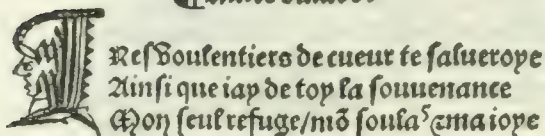 TRes Voulentiers de cueur te ſalueroye
Ainſi que iay de toy la ſouuenance
Mon ſeul refuge/mõ ſoulas ⁊ma ioye